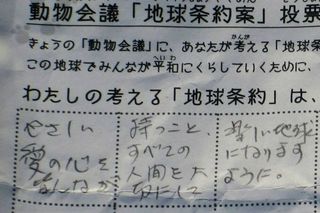 動物会議「地球条約案」投票
きょうの「動物会議」に、あなたが考える「地球条
かんが
この地球でみんなが平和にくらしていくために、
へいわ
わたしの考える「地球条約」は、
やさしい
愛の心を
みんなが
持つこと、
すべての
人間を大
切にして
楽しい地球
になります
ように。